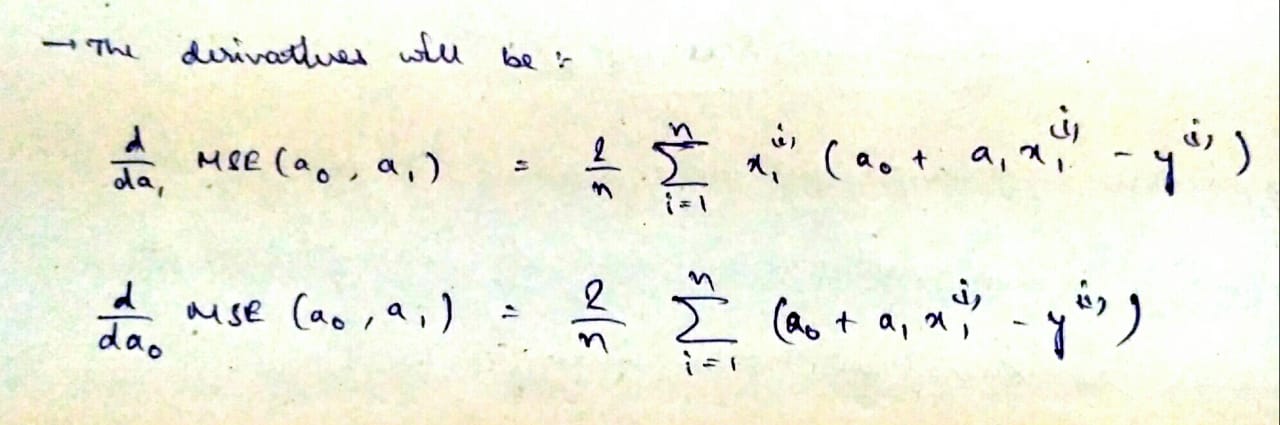 → The derivatives will be :-
d/da₁ MSE (a₀, a₁) = 2/n Σⁿᵢ₌₁ x₁⁽ⁱ⁾ (a₀ + a₁ x₁⁽ⁱ⁾ - y⁽ⁱ⁾)
d/da₀ MSE (a₀, a₁) = 2/n Σⁿᵢ₌₁ (a₀ + a₁ x₁⁽ⁱ⁾ - y⁽ⁱ⁾)